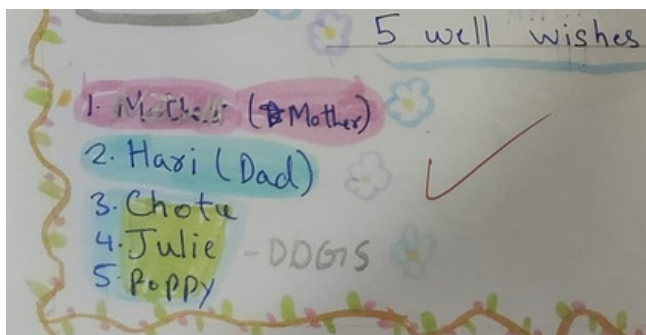 5 well wishes
1. (Mother)
2. Hari (Dad)
3. Chotu
4. Julie - DOGS
5. Poppy